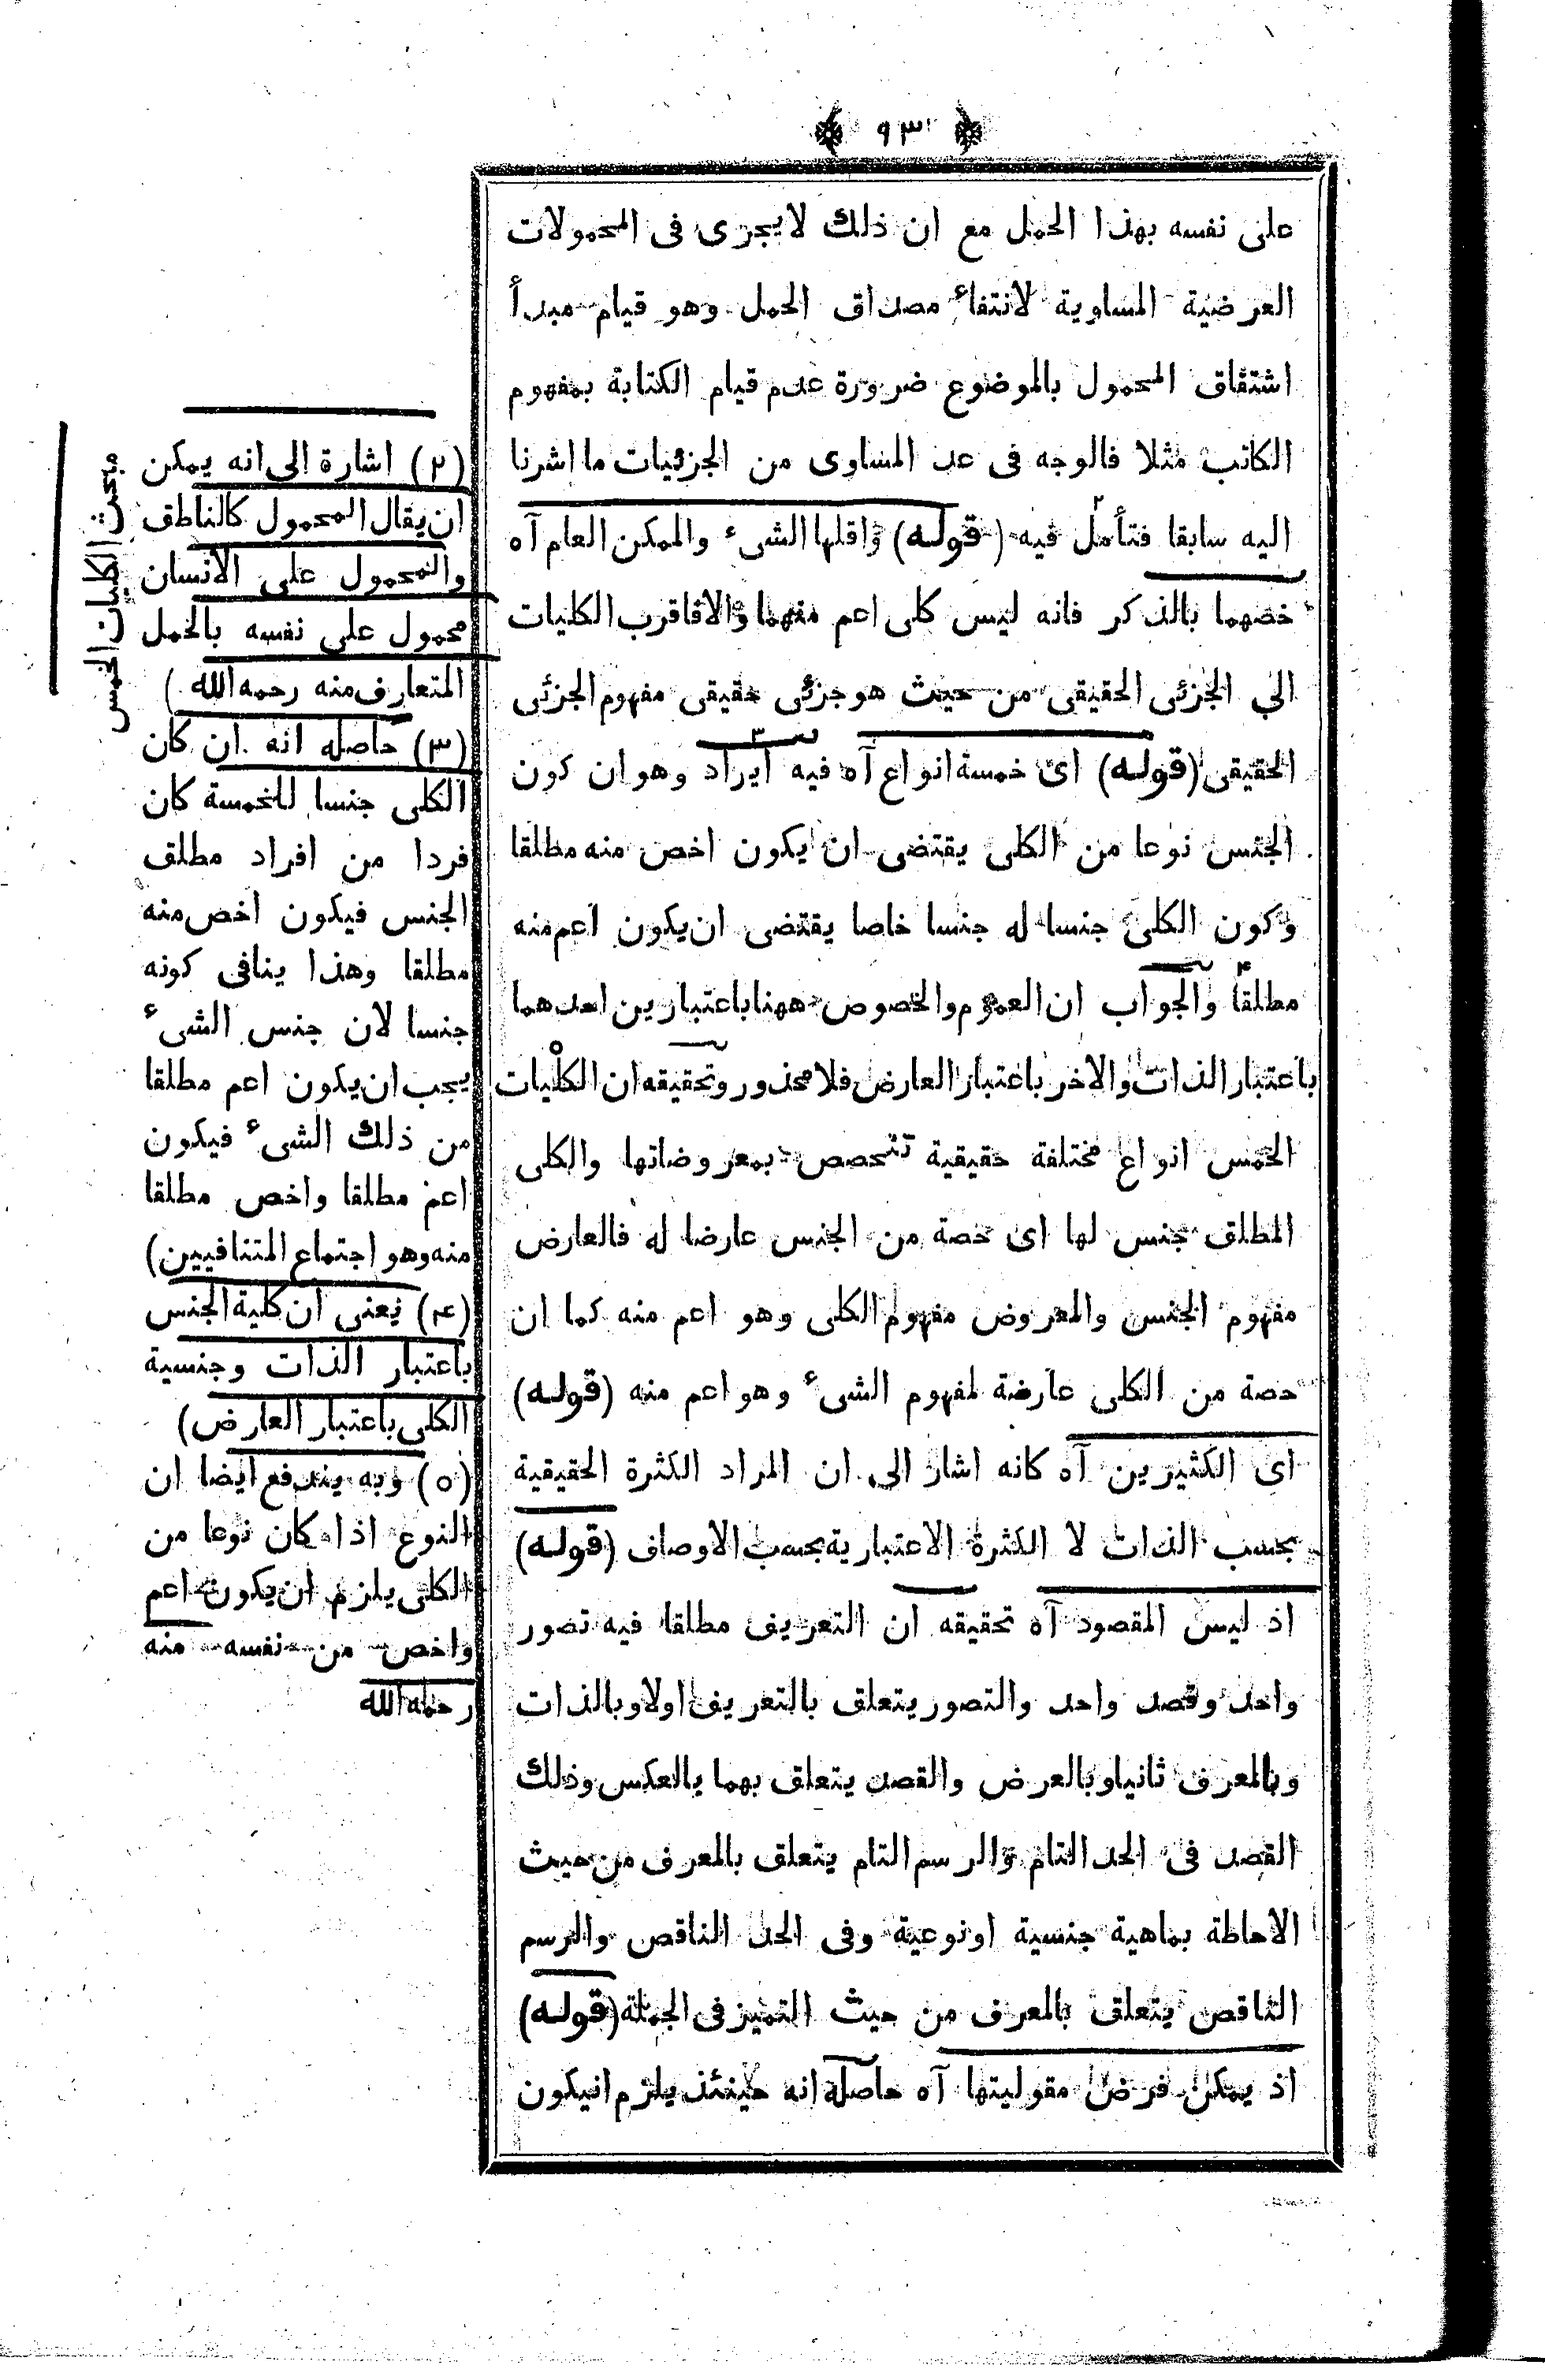 ﴿ ٩٣ ﴾
على نفسه بهذا الحمل مع ان ذلك لا يجرى فى المحمولات
العرضية المساوية لانتفاء مصداق الحمل وهو قيام مبدأ
اشتقاق المحمول بالموضوع ضرورة عدم قيام الكتابة بمفهوم
الكاتب مثلا فالوجه فى عد المساوى من الجزئيات ما اشرنا
اليه سابقا فتأمل ٢ فيه (قوله) واقلها الشىء والممكن العام آه
خصهما بالذكر فانه ليس كلى اعم منهما والا فاقرب الكليات
الى الجزئى الحقيقى من حيث هو جزئى حقيقى مفهوم الجزئى
الحقيقى (قوله) اى خمسة انواع آه فيه ايراد ٣ وهو ان كون
الجنس نوعا من الكلى يقتضى ان يكون اخص منه مطلقا
وكون الكلى جنسا له جنسا خاصا يقتضى ان يكون اعم منه
مطلقا ٤ والجواب ان العموم والخصوص ههنا باعتبارين احدهما
باعتبار الذات والاخر باعتبار العارض فلا محذور وتحقيقه ان ٥ الكليات
الخمس انواع مختلفة حقيقية تتحصص بمعروضاتها والكلى
المطلق جنس لها اى حصة من الجنس عارضا له فالعارض
مفهوم الجنس والمعروض مفهوم الكلى وهو اعم منه كما ان
حصة من الكلى عارضة لمفهوم الشىء وهو اعم منه (قوله)
اى الكثيرين آه كانه اشار الى ان المراد الكثرة الحقيقية
بحسب الذات لا الكثرة الاعتبارية بحسب الاوصاف (قوله)
اذ ليس المقصود آه تحقيقه ان التعريف مطلقا فيه تصور
واحد وقصد واحد والتصور يتعلق بالتعريف اولا وبالذات
وبالمعرف ثانيا وبالعرض والقصد يتعلق بهما بالعكس وذلك
القصد فى الحد التام والرسم التام يتعلق بالمعرف من حيث
الاحاطة بماهية جنسية او نوعية وفى الحد الناقص والرسم
الناقص يتعلق بالمعرف من حيث التميز فى الجملة (قوله)
اذ يمكن فرض مقوليتها آه حاصله انه حينئذ يلزم انيكون
مبحث الكليات الخمس
(٢) اشارة الى انه يمكن
ان يقال المحمول كالناطق
والمحمول على الانسان
محمول على نفسه بالحمل
المتعارف منه رحمه الله )
(٣) حاصله انه ان كان
الكلى جنسا للخمسة كان
فردا من افراد مطلق
الجنس فيكون اخص منه
مطلقا وهذا ينافى كونه
جنسا لان جنس الشىء
يجب ان يكون اعم مطلقا
من ذلك الشىء فيكون
اعم مطلقا واخص مطلقا
منه وهو اجتماع المتنافيين)
(٤) يعنى ان كلية الجنس
باعتبار الذات وجنسية
الكلى باعتبار العارض)
(٥) وبه يندفع ايضا ان
النوع اذا كان نوعا من
الكلى يلزم ان يكون اعم
واخص من نفسه منه
رحمه الله